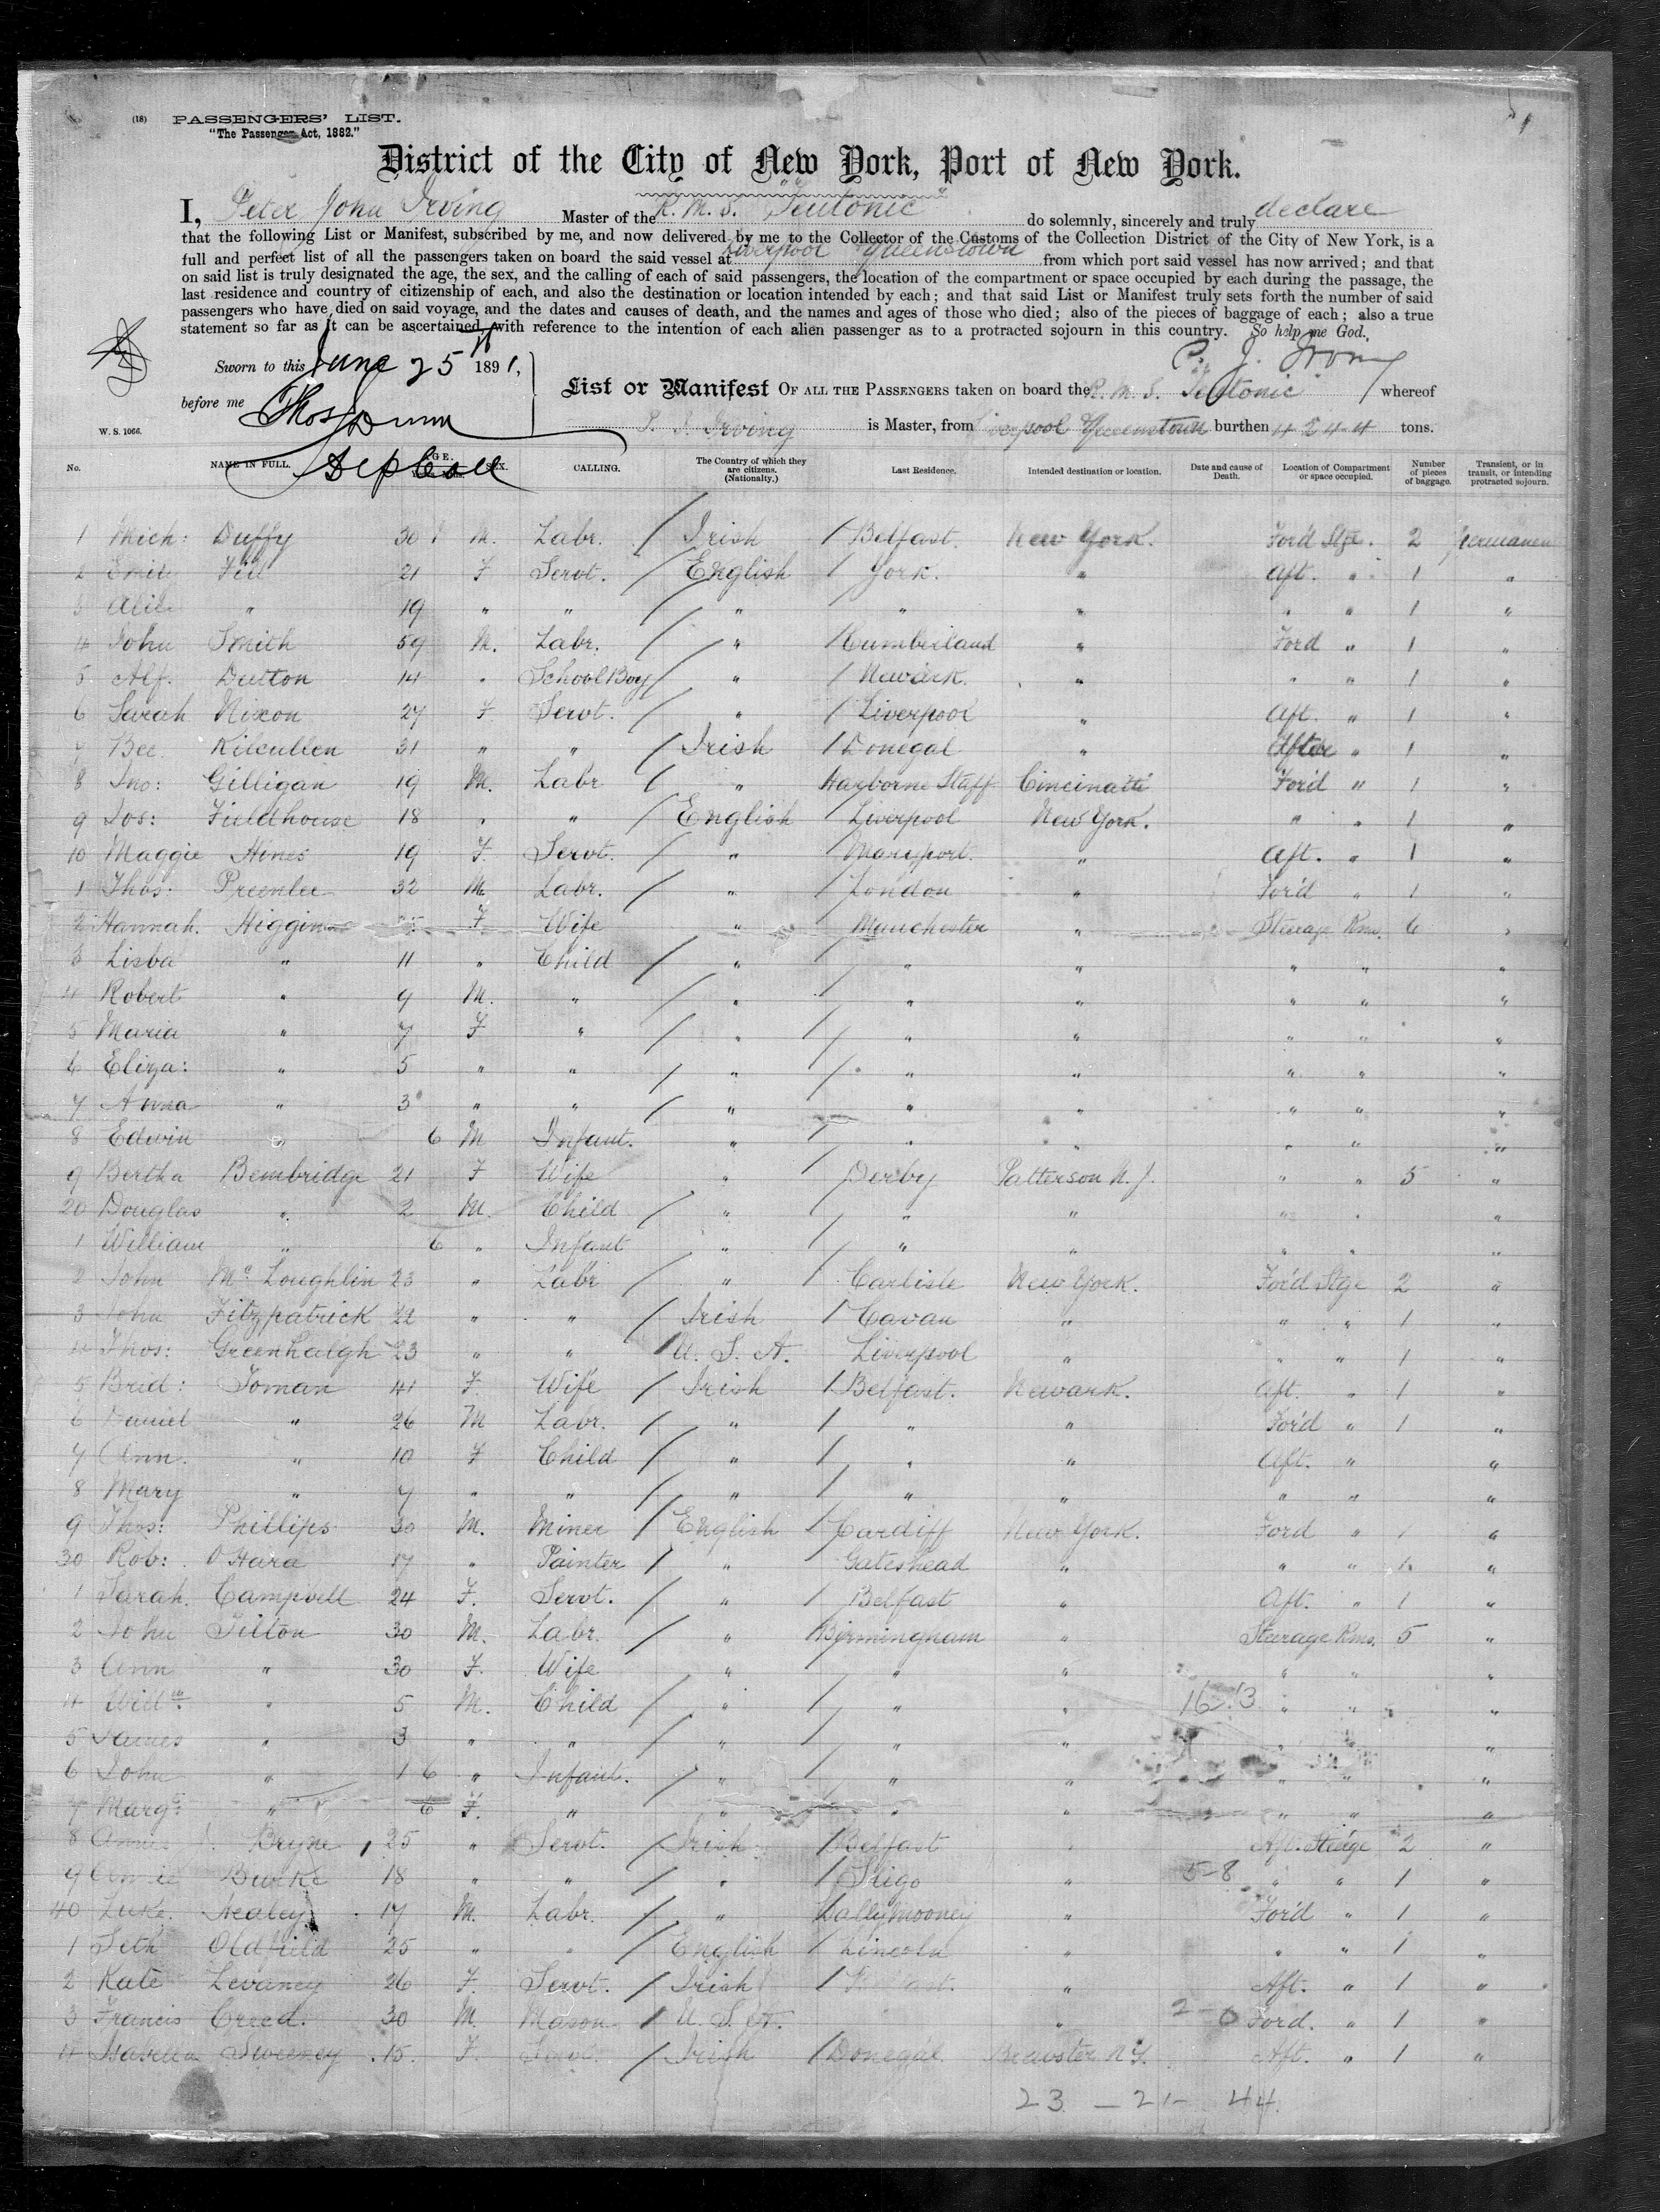 (18) PASSENGERS' LIST.
"The Passenger Act, 1882."
District of the City of New York, Port of New York.
I, Peter John Irving Master of the R. M. S. Teutonic do solemnly, sincerely and truly declare
that the following List or Manifest, subscribed by me, and now delivered by me to the Collector of the Customs of the Collection District of the City of New York, is a
full and perfect list of all the passengers taken on board the said vessel at Liverpool Queenstown from which port said vessel has now arrived; and that
on said list is truly designated the age, the sex, and the calling of each of said passengers, the location of the compartment or space occupied by each during the passage, the
last residence and country of citizenship of each, and also the destination or location intended by each; and that said List or Manifest truly sets forth the number of said
passengers who have died on said voyage, and the dates and causes of death, and the names and ages of those who died; also of the pieces of baggage of each; also a true
statement so far as it can be ascertained, with reference to the intention of each alien passenger as to a protracted sojourn in this country. So help me God.
P. J. Irving
Sworn to this June 25th 1891,
before me Thos Dunn
Dep Coll
List or Manifest OF ALL THE PASSENGERS taken on board the R. M. S. Teutonic whereof
W. S. 1066.
P. J. Irving is Master, from Liverpool Queenstown burthen 4244 tons.
No. NAME IN FULL. AGE. SEX. CALLING. The Country of which they are citizens. (Nationality.) Last Residence. Intended destination or location. Date and cause of Death. Location of Compartment or space occupied. Number of pieces of baggage. Transient, or in transit, or intending protracted sojourn.
1 Mich: Duffy 30 M. Labr. / Irish / Belfast. New York. For'd Stge. 2 permanent
2 Emily 21 F Servt. / English / York. " Aft. " 1 "
3 " 19 " " / " " " " " 1 "
4 John Smith 59 M. Labr. / " / Cumberland " Ford " 1 "
5 Alf. Dutton 14 " School Boy / " / Newark. " " " 1 "
6 Sarah Nixon 27 F Servt. / " / Liverpool " Aft. " 1 "
7 Bee. Kilcullen 31 " " / Irish / Donegal " After " 1 "
8 Jno: Gilligan 19 M. Labr / " Harborne Staff Cincinatti For'd " 1 "
9 Jos: Fieldhouse 18 " " / English / Liverpool New York. " " 1 "
10 Maggie Hines 19 F. Servt. / " / Maryport. " Aft. " 1 "
1 Thos: Preenlee 32 M. Labr. / " / London " For'd " 1 "
2 Hannah. Higgins 35 F. Wife " Manchester " Steerage Rms. 6 "
3 " 11 " Child / " / " " " " "
4 Robert " 9 M. " / " / " " " " "
5 Maria " 7 F " / " / " " " " "
6 Eliza: " 5 " " / " / " " " " "
7 Anna " 3 " " / " " " " " "
8 Edwin " 6 M Infant. " / " " " " "
9 Bertha Bembridge 21 F Wife " / Derby Patterson N. J. " " 5 "
20 Douglas " 2 M. Child / " / " " " " "
1 William " 6 " Infant " / " " " " "
2 John McLoughlin 23 " Labr / " / Carlisle New York. For'd Stge 2 "
3 John Fitzpatrick 22 " " / Irish / Cavan " " " 1 "
4 Thos: Greenhalgh 23 " " / U. S. A. Liverpool " " " 1 "
5 Brid: Toman 41 F. Wife / Irish / Belfast. Newark. Aft. " 1 "
6 Daniel " 26 M Labr. / " / " " For'd " 1 "
7 Ann. " 10 F Child / " / " " Aft. " "
8 Mary " 7 " " / " / " " " " "
9 Thos: Phillips 30 M. Miner / English / Cardiff New York. Ford " 1 "
30 Rob: O'Hara 17 " Painter / " Gateshead " " " 1 "
1 Sarah. Campbell 24 F. Servt. / " / Belfast " Aft. " 1 "
2 John Tilton 30 M. Labr. / " / Birmingham " Steerage Rms. 5 "
3 Ann " 30 F. Wife " / " " " " "
4 Willm " 5 M. Child / " / " " 16 13 " " "
5 James " 3 " " / " / " " " " "
6 John " 1 6 " Infant. / " / " " " " "
7 Margt: " 6 F. " " " " " " "
8 Annie Bryne 25 " Servt. / Irish / Belfast " Aft. Steerge 2 "
9 Annie Burke 18 " " / " / Sligo " 5-8 " " 1 "
40 Luke. Healey 17 M. Labr. / " / Ballymooney " For'd " 1 "
1 Seth Oldfield 25 " " / English / Lincoln " " " 1 "
2 Kate Levaney 26 F. Servt. / Irish / " Aft. " 1 "
3 Francis Creed. 30 M. Mason / U. S. A. " 2-0 Ford. " 1 "
4 Isabella Sweeney 15. F. Servt. / Irish / Donegal. Brewster N Y. Aft. " 1 "
23 - 21 - 44